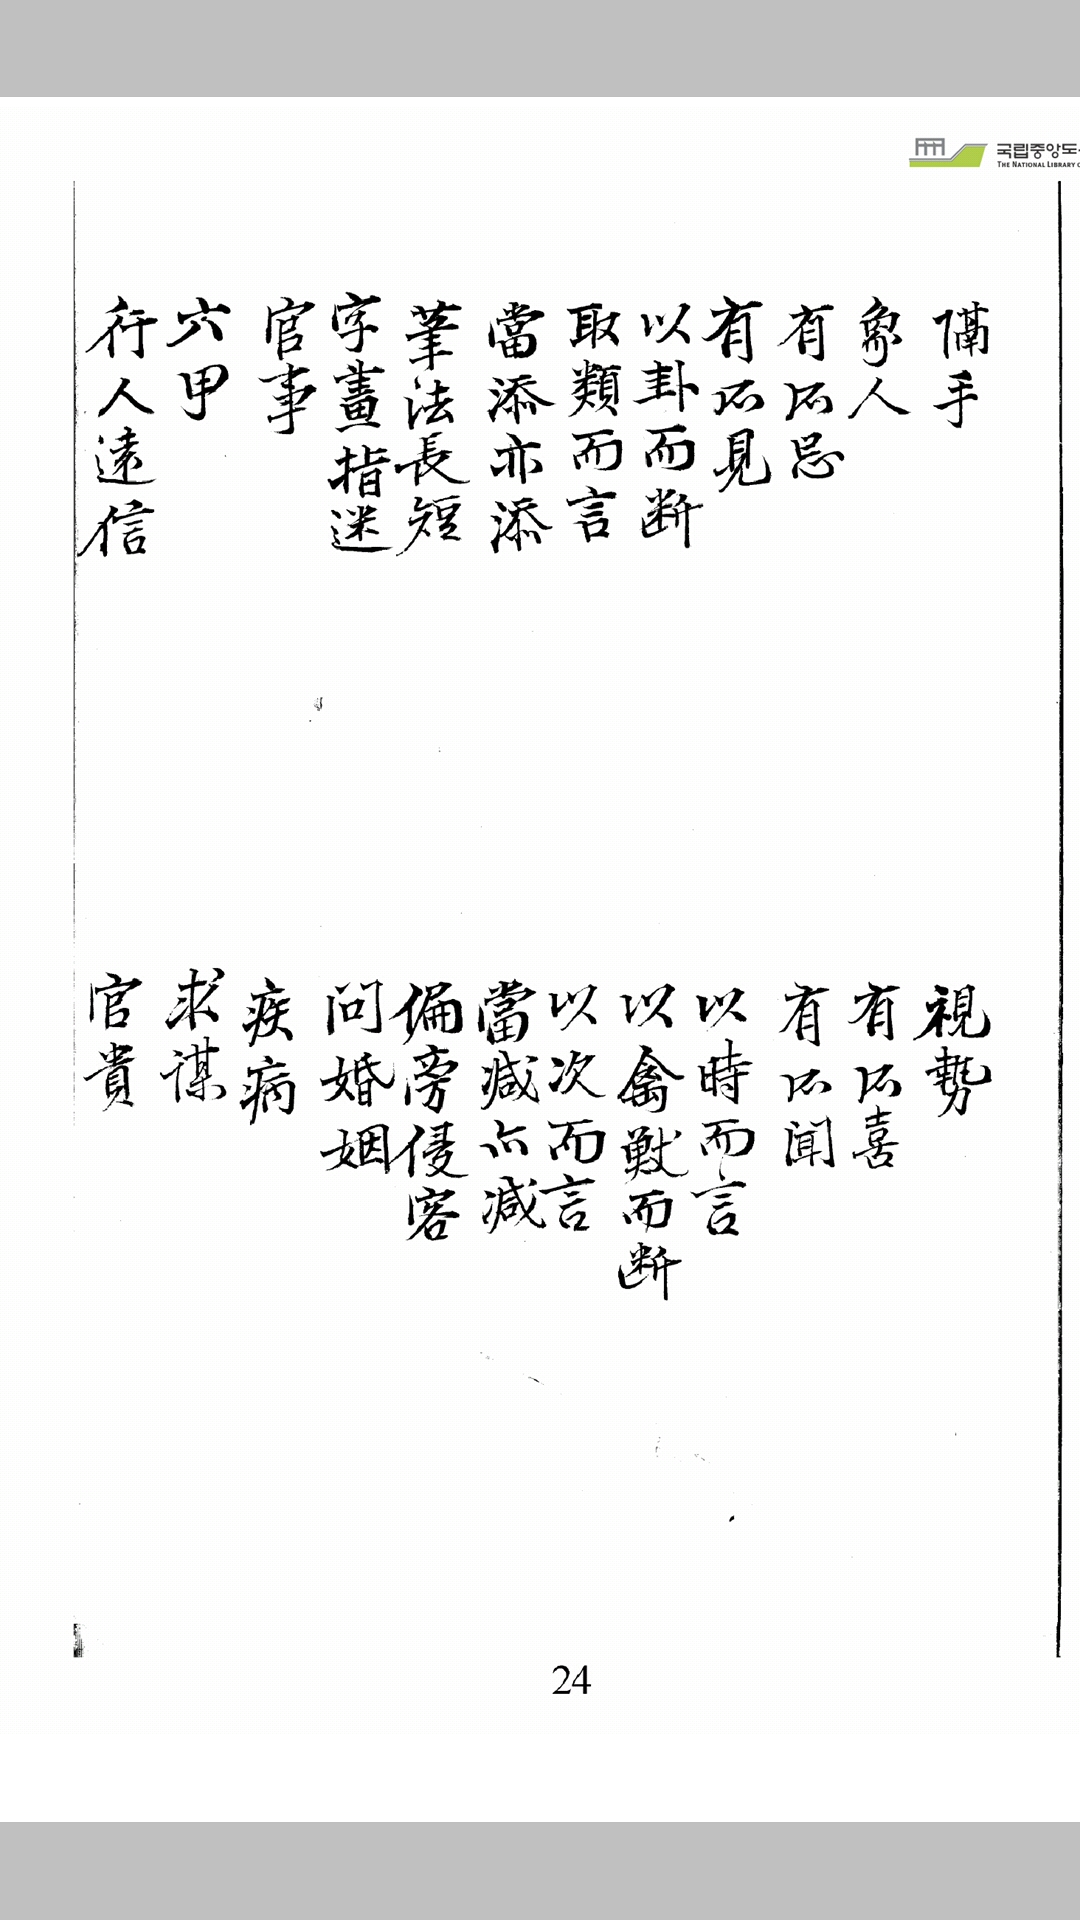 국립중앙도
THE NATIONAL LIBRARY O
隔手
視勢
象人
有所喜
有所忌
有所聞
有所見
以時而言
以卦而断
以禽獣而断
取類而言
以次而言
當添亦添
當减亦减
筆法長短
偏旁侵客
字畫指迷
問婚姻
官事
疾病
六甲
求謀
行人遠信
官貴
24